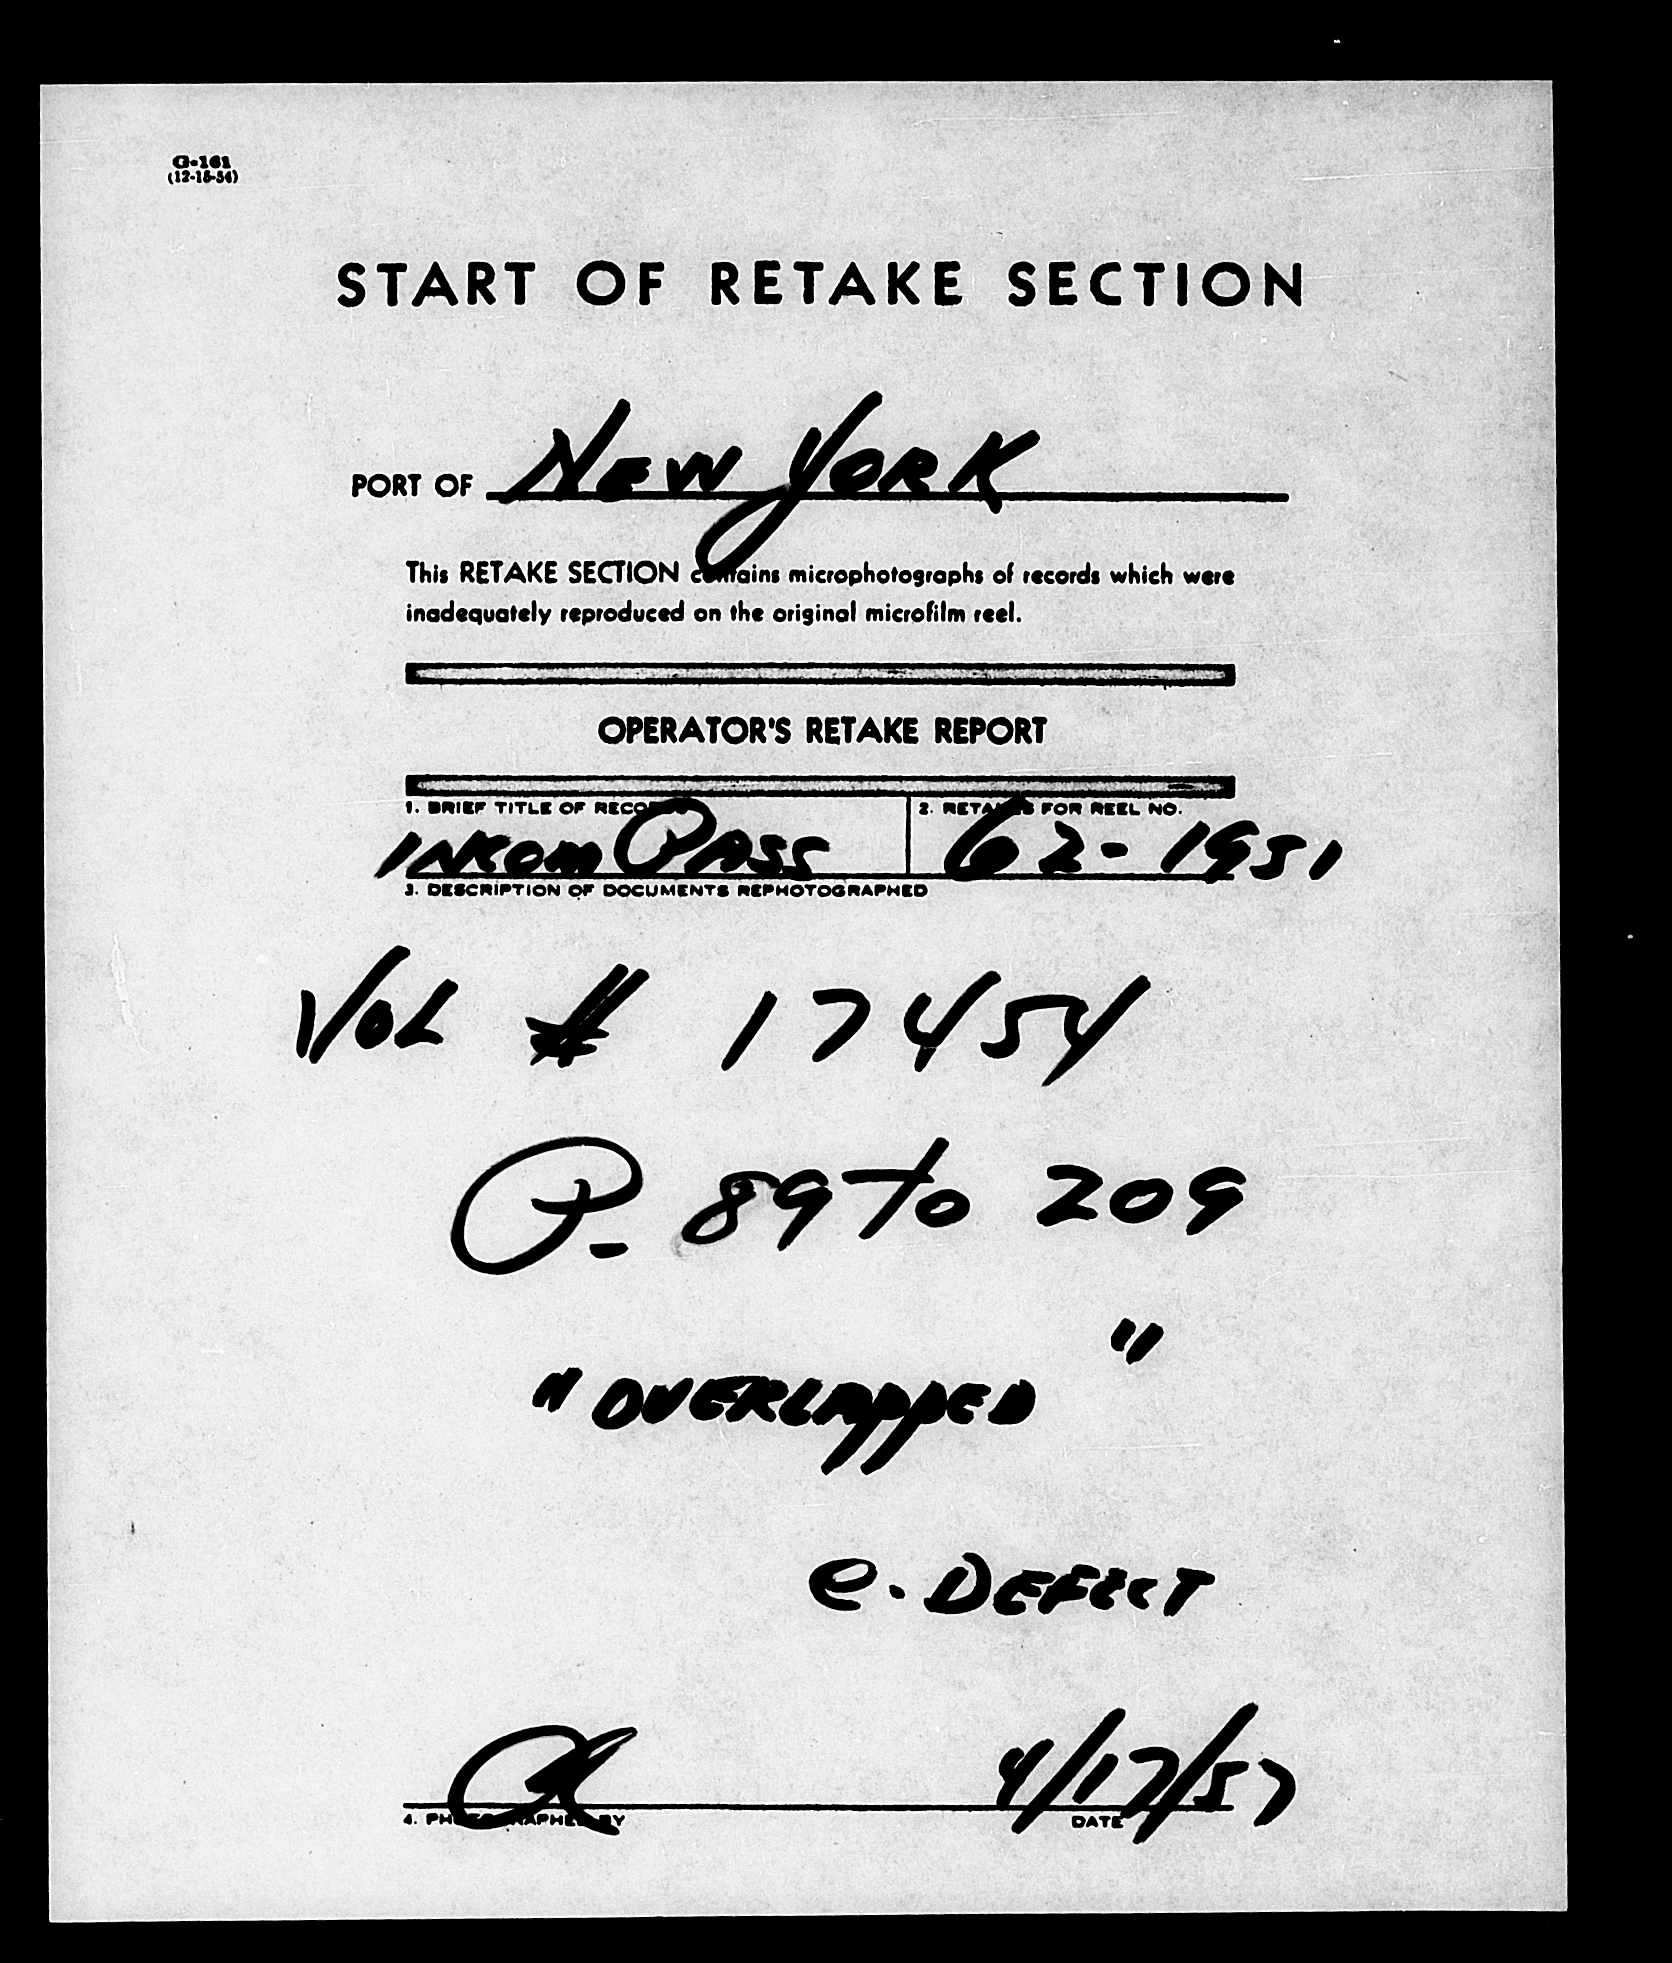 G-161
(12-15-54)
START OF RETAKE SECTION
PORT OF NEW YORK
This RETAKE SECTION contains microphotographs of records which were
inadequately reproduced on the original microfilm reel.
OPERATOR'S RETAKE REPORT
1. BRIEF TITLE OF RECORDS 2. RETAKES FOR REEL NO.
INKOM PASS 62-1951
3. DESCRIPTION OF DOCUMENTS REPHOTOGRAPHED
VOL # 17454
P- 89 to 209
"OVERLAPPED"
e. DEFECT
4/17/57
4. PHOTOGRAPHED BY DATE